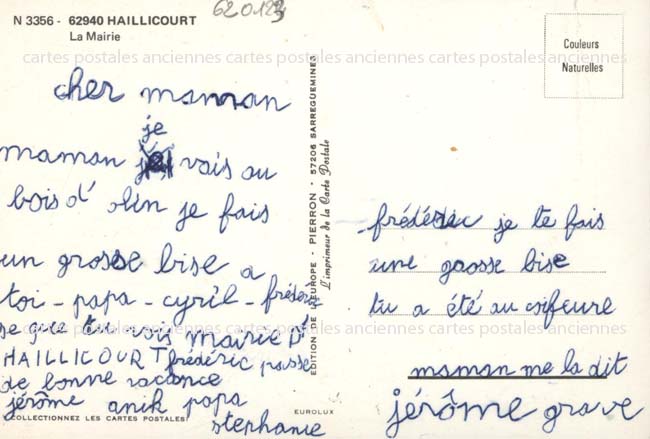 N 3356 - 62940 HAILLICOURT
La Mairie
620123
Couleurs
Naturelles
cartes postales anciennes cartes postales anciennes cartes postales anciennes
cher maman
je
maman vais au
bois d' olin je fais
un grosse bise a
toi - papa - cyril - frédéric
se que tu vois mairie D'
HAILLICOURT frédéric passe
de bonne vacance
jérôme anik papa
stephanie
COLLECTIONNEZ LES CARTES POSTALES
EUROLUX
EDITION DE L'EUROPE - PIERRON - 57206 SARREGUEMINES
L'imprimeur de la Carte Postale
frédéric je te fais
une grosse bise
tu a été au coifeure
cartes postales anciennes cartes postales anciennes cartes postales anciennes
maman me la dit
jérôme grave